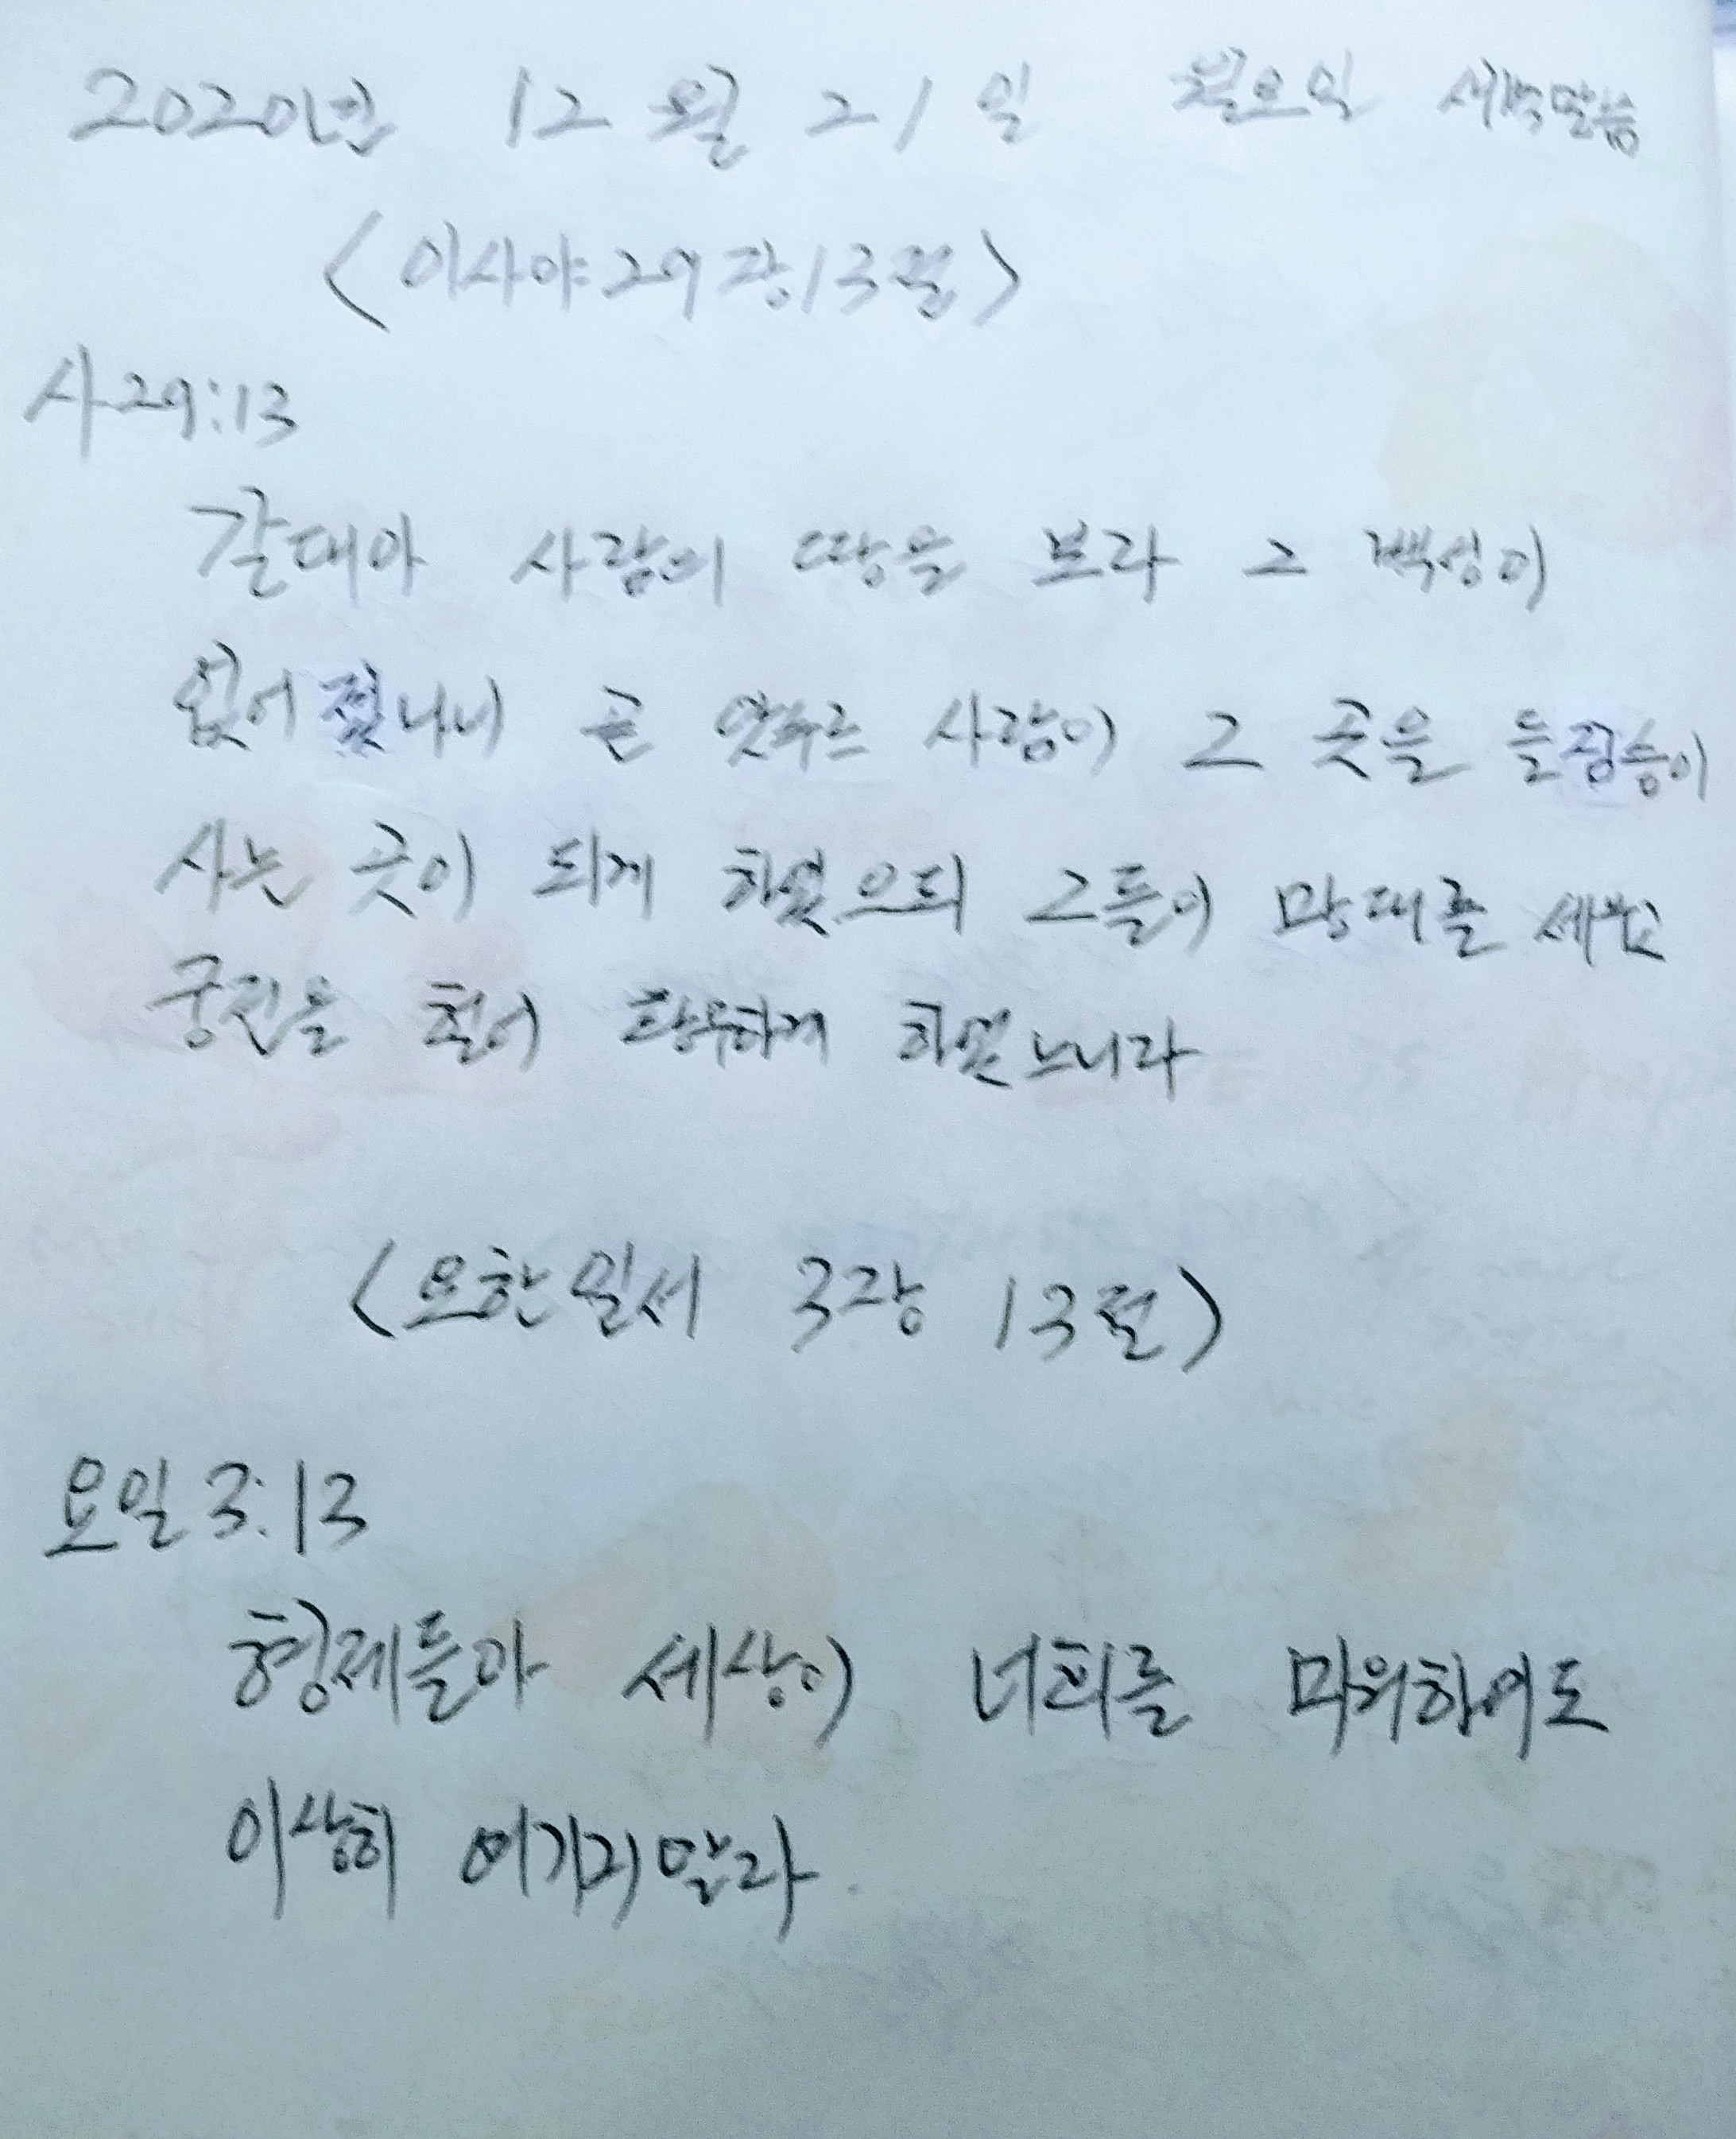 2020년 12월 21일 월요일 새벽말씀
<이사야29장13절>
사29:13
갈대아 사람의 땅을 보라 그 백성이
없어졌나니 곧 앗수르 사람이 그 곳을 들짐승이
사는 곳이 되게 하였으되 그들이 망대를 세우고
궁전을 헐어 황무하게 하였느니라
<요한일서 3장 13절>
요일3:13
형제들아 세상이 너희를 미워하여도
이상히 여기지말라.